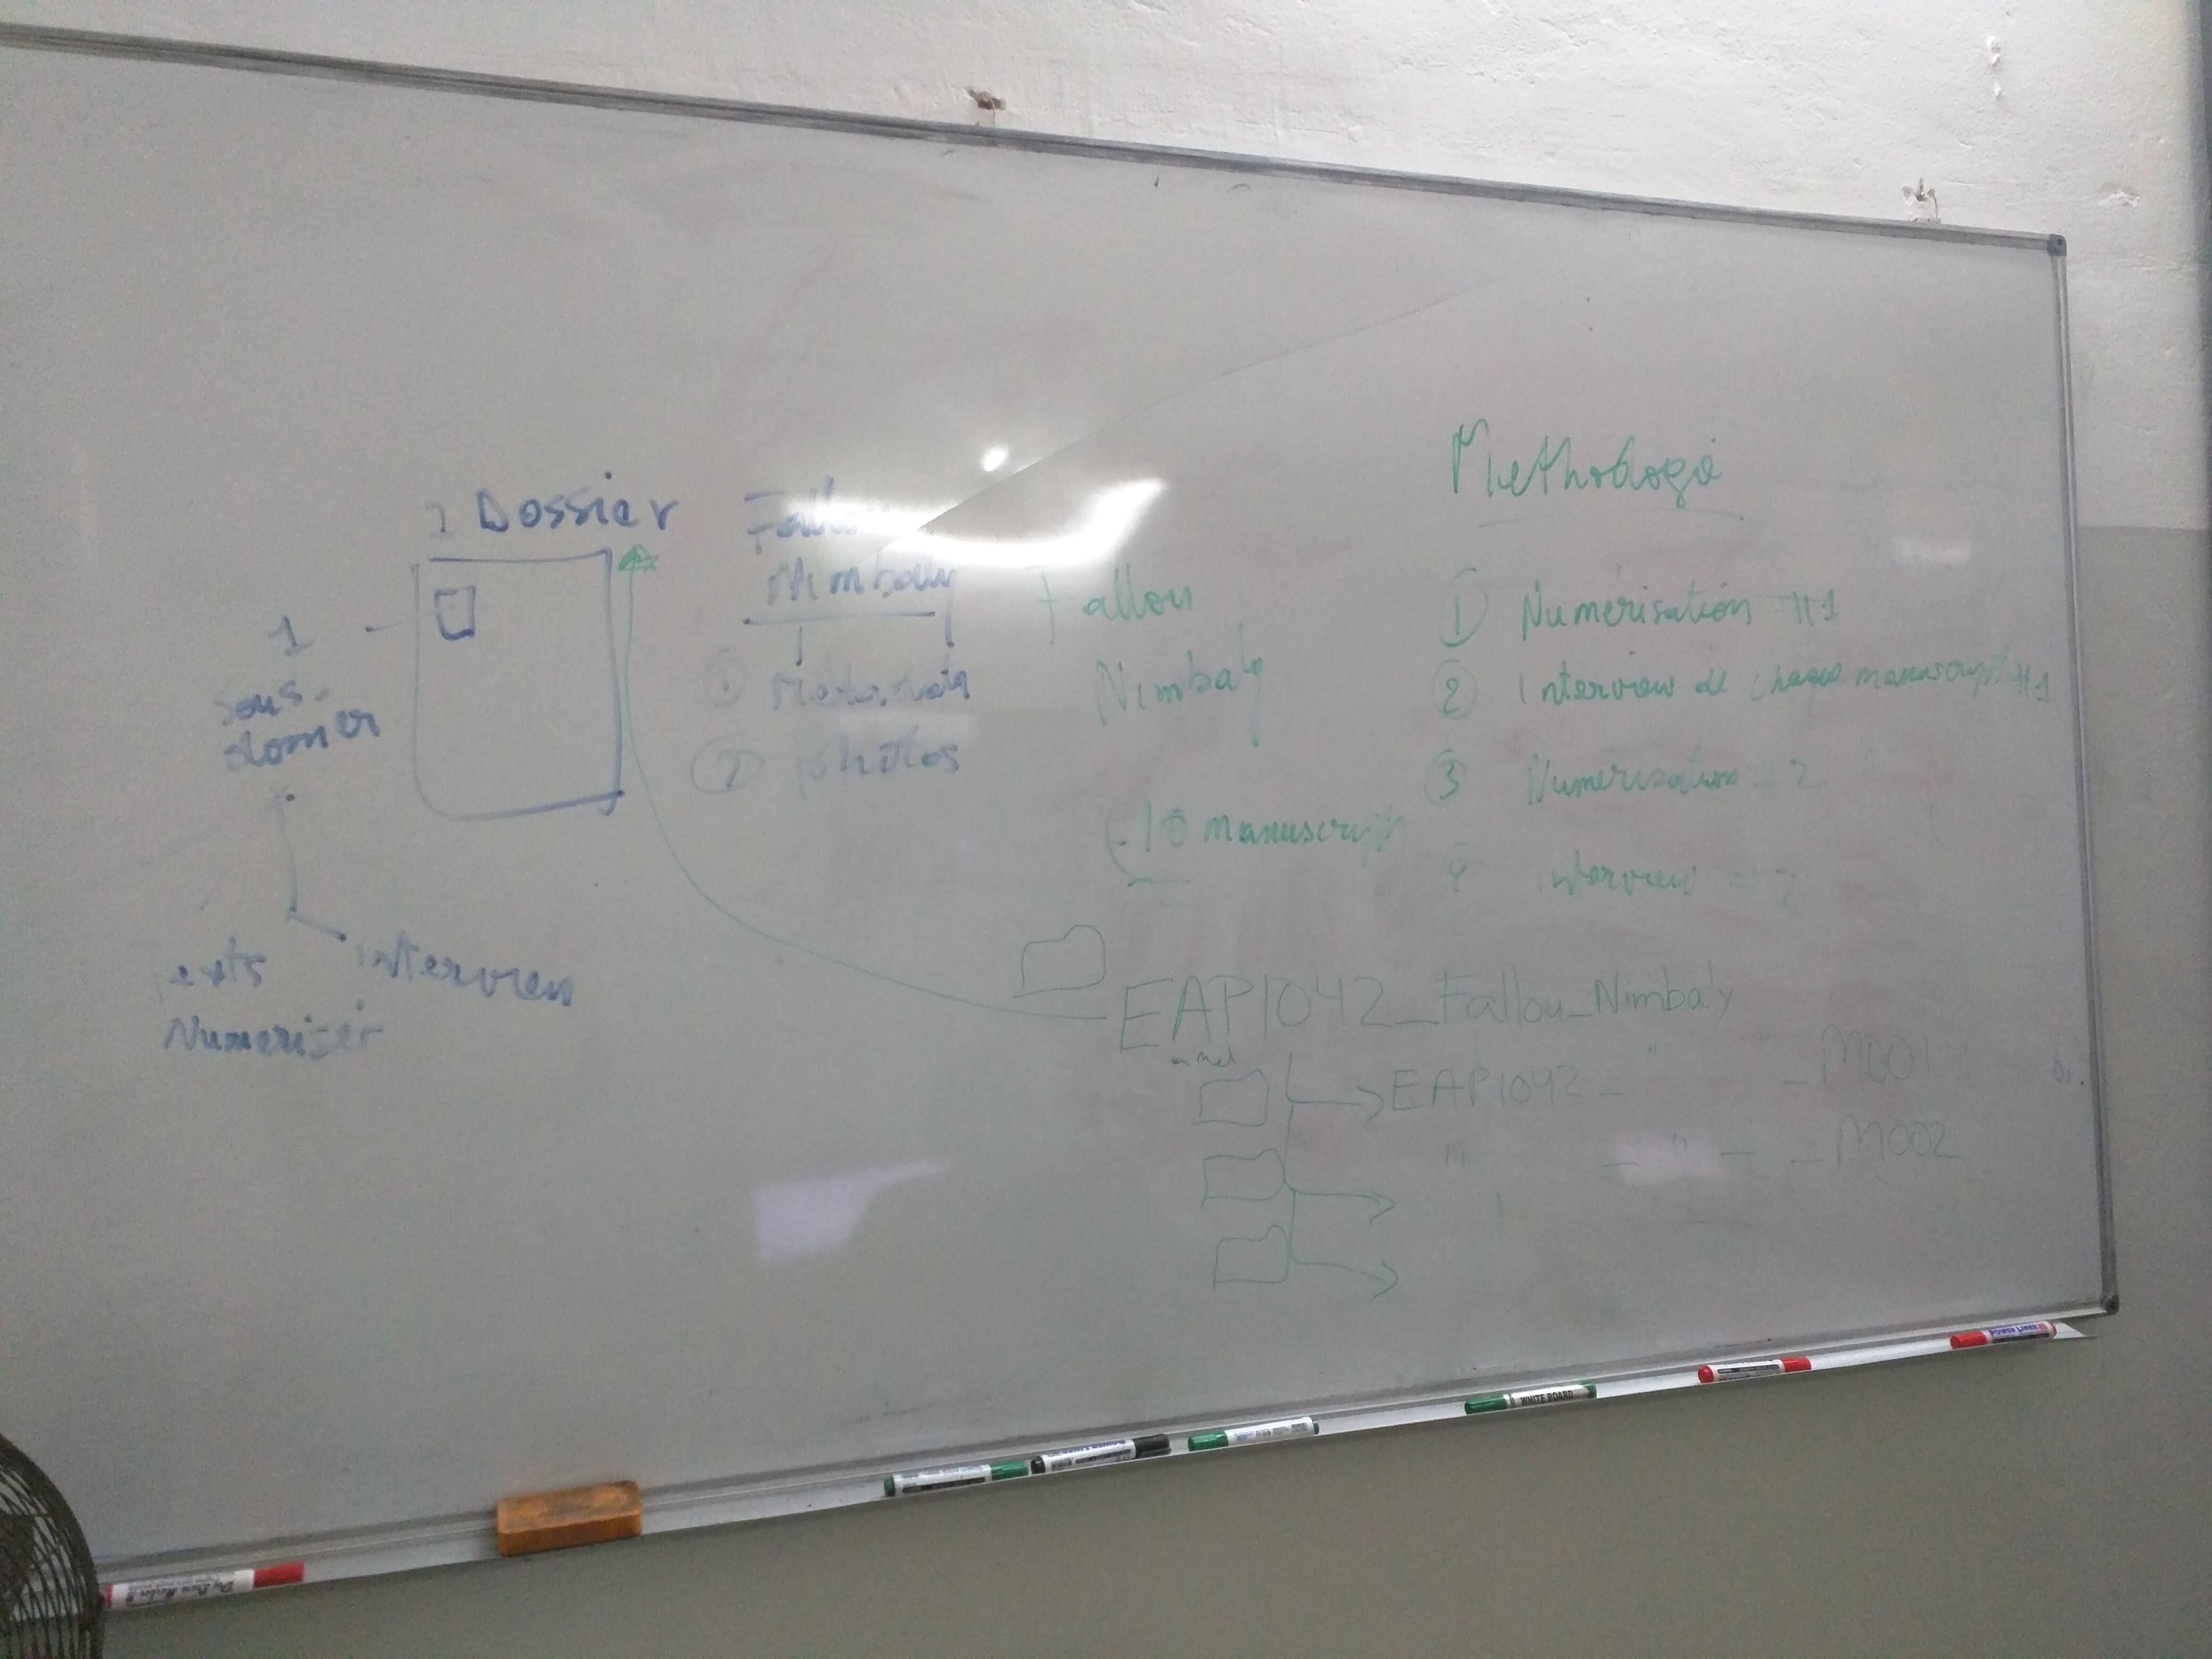 1 Dossier
1
sous.
Fallou
Nimbaly
① Metadata
② photos
texts
Numeriser
interview
Fallou
Nimbaly
10 manuscripts
Methologie
① Numérisation #1
② Interview de chaque manuscript #1
③ Numerisation 2
4 interview 2
EAP1042_Fallou_Nimbaly
EAP1042_ " " _M001
" _ " _ _M002
POWER LINER
WHITE BOARD